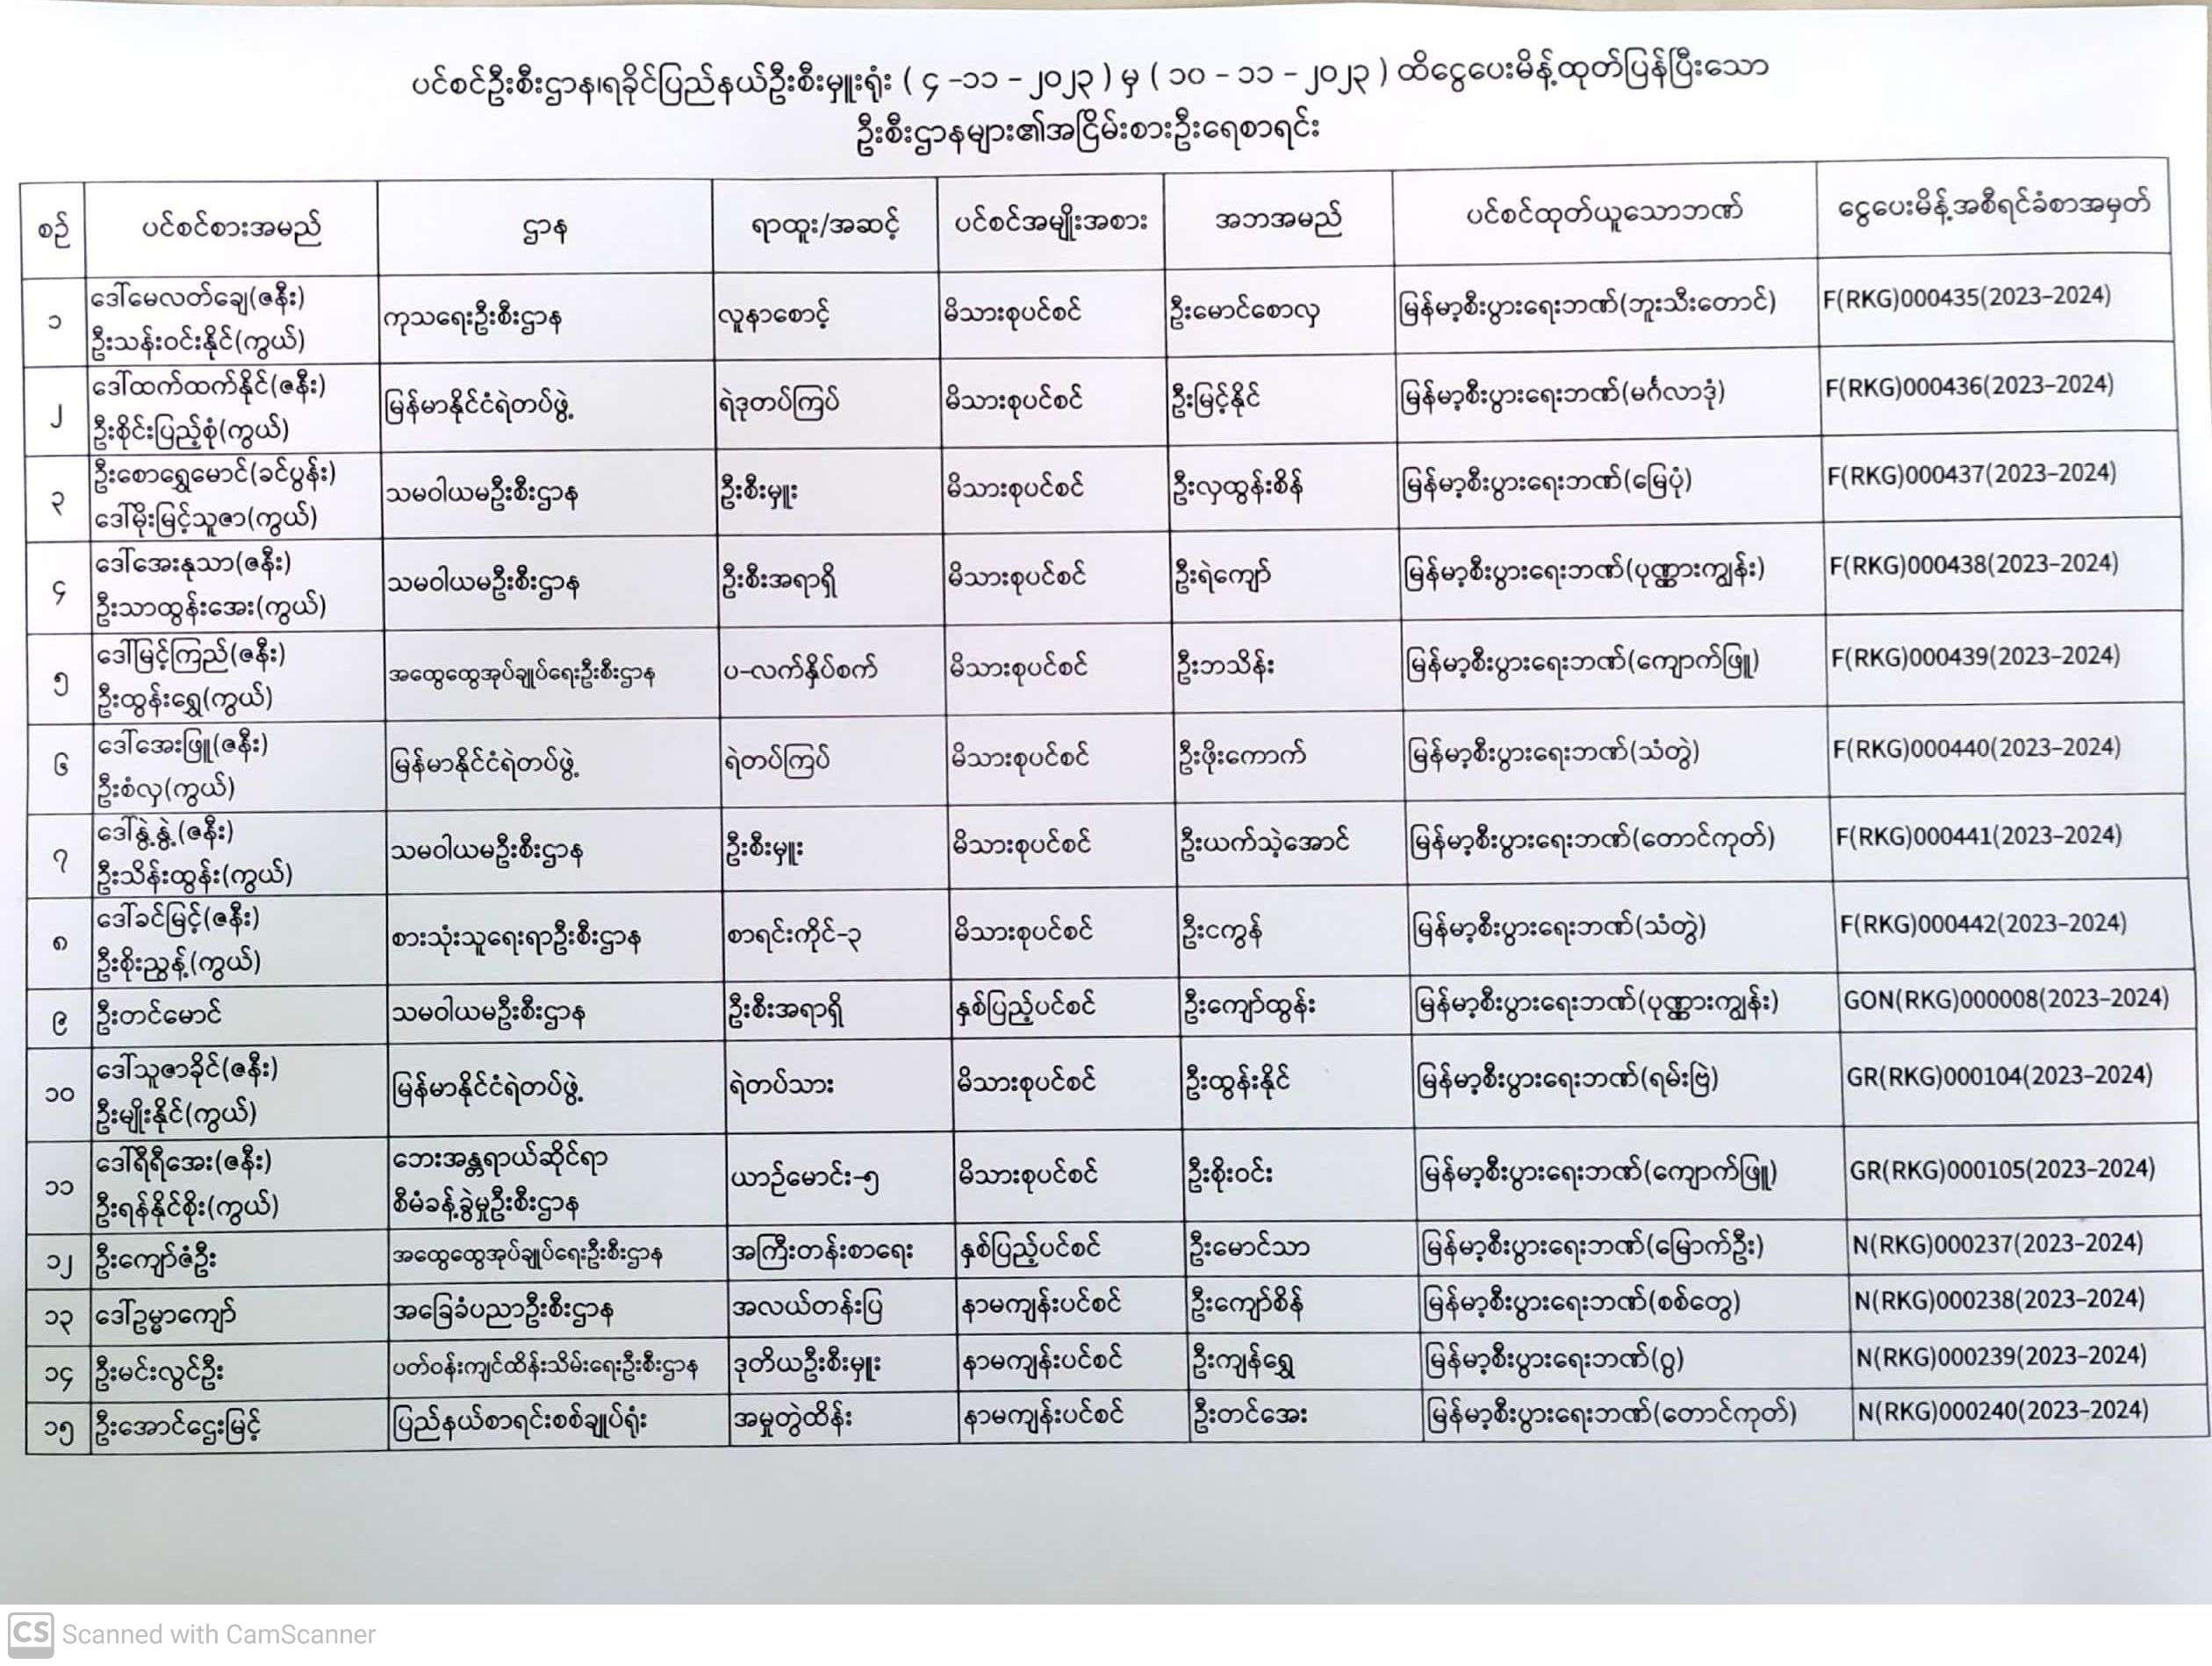 ပင်စင်ဦးစီးဌာန၊ရခိုင်ပြည်နယ်ဦးစီးမှူးရုံး ( ၄ -၁၁ - ၂၀၂၃ ) မှ ( ၁၀ - ၁၁ - ၂၀၂၃ ) ထိငွေပေးမိန့်ထုတ်ပြန်ပြီးသော
ဦးစီးဌာနများ၏အငြိမ်းစားဦးရေစာရင်း
စဉ် ပင်စင်စားအမည် ဌာန ရာထူး/အဆင့် ပင်စင်အမျိုးအစား အဘအမည် ပင်စင်ထုတ်ယူသောဘဏ် ငွေပေးမိန့်အစီရင်ခံစာအမှတ်
၁ ဒေါ်မေလတ်ချေ(ဇနီး) ကုသရေးဦးစီးဌာန လူနာစောင့် မိသားစုပင်စင် ဦးမောင်စောလှ မြန်မာ့စီးပွားရေးဘဏ်(ဘူးသီးတောင်) F(RKG)000435(2023-2024)
ဦးသန်းဝင်းနိုင်(ကွယ်)
၂ ဒေါ်ထက်ထက်နိုင်(ဇနီး) မြန်မာနိုင်ငံရဲတပ်ဖွဲ့ ရဲဒုတပ်ကြပ် မိသားစုပင်စင် ဦးမြင့်နိုင် မြန်မာ့စီးပွားရေးဘဏ်(မင်္ဂလာဒုံ) F(RKG)000436(2023-2024)
ဦးစိုင်းပြည့်စုံ(ကွယ်)
၃ ဦးစောရွှေမောင်(ခင်ပွန်း) သမဝါယမဦးစီးဌာန ဦးစီးမှူး မိသားစုပင်စင် ဦးလှထွန်းစိန် မြန်မာ့စီးပွားရေးဘဏ်(မြေပုံ) F(RKG)000437(2023-2024)
ဒေါ်မိုးမြင့်သူဇာ(ကွယ်)
၄ ဒေါ်အေးနုသာ(ဇနီး) သမဝါယမဦးစီးဌာန ဦးစီးအရာရှိ မိသားစုပင်စင် ဦးရဲကျော် မြန်မာ့စီးပွားရေးဘဏ်(ပုဏ္ဏားကျွန်း) F(RKG)000438(2023-2024)
ဦးသာထွန်းအေး(ကွယ်)
၅ ဒေါ်မြင့်ကြည်(ဇနီး) အထွေထွေအုပ်ချုပ်ရေးဦးစီးဌာန ပ-လက်နှိပ်စက် မိသားစုပင်စင် ဦးဘသိန်း မြန်မာ့စီးပွားရေးဘဏ်(ကျောက်ဖြူ) F(RKG)000439(2023-2024)
ဦးထွန်းရွှေ(ကွယ်)
၆ ဒေါ်အေးဖြူ(ဇနီး) မြန်မာနိုင်ငံရဲတပ်ဖွဲ့ ရဲတပ်ကြပ် မိသားစုပင်စင် ဦးဖိုးကောက် မြန်မာ့စီးပွားရေးဘဏ်(သံတွဲ) F(RKG)000440(2023-2024)
ဦးစံလှ(ကွယ်)
၇ ဒေါ်နွဲ့နွဲ့(ဇနီး) သမဝါယမဦးစီးဌာန ဦးစီးမှူး မိသားစုပင်စင် ဦးယက်သဲ့အောင် မြန်မာ့စီးပွားရေးဘဏ်(တောင်ကုတ်) F(RKG)000441(2023-2024)
ဦးသိန်းထွန်း(ကွယ်)
၈ ဒေါ်ခင်မြင့်(ဇနီး) စားသုံးသူရေးရာဦးစီးဌာန စာရင်းကိုင်-၃ မိသားစုပင်စင် ဦးငကွန် မြန်မာ့စီးပွားရေးဘဏ်(သံတွဲ) F(RKG)000442(2023-2024)
ဦးစိုးညွန့်(ကွယ်)
၉ ဦးတင်မောင် သမဝါယမဦးစီးဌာန ဦးစီးအရာရှိ နှစ်ပြည့်ပင်စင် ဦးကျော်ထွန်း မြန်မာ့စီးပွားရေးဘဏ်(ပုဏ္ဏားကျွန်း) GON(RKG)000008(2023-2024)
၁၀ ဒေါ်သူဇာခိုင်(ဇနီး) မြန်မာနိုင်ငံရဲတပ်ဖွဲ့ ရဲတပ်သား မိသားစုပင်စင် ဦးထွန်းနိုင် မြန်မာ့စီးပွားရေးဘဏ်(ရမ်းဗြဲ) GR(RKG)000104(2023-2024)
ဦးမျိုးနိုင်(ကွယ်)
၁၁ ဒေါ်ရီရီအေး(ဇနီး) ဘေးအန္တရာယ်ဆိုင်ရာ ယာဉ်မောင်း-၅ မိသားစုပင်စင် ဦးစိုးဝင်း မြန်မာ့စီးပွားရေးဘဏ်(ကျောက်ဖြူ) GR(RKG)000105(2023-2024)
ဦးရန်နိုင်စိုး(ကွယ်) စီမံခန့်ခွဲမှုဦးစီးဌာန
၁၂ ဦးကျော်ဇံဦး အထွေထွေအုပ်ချုပ်ရေးဦးစီးဌာန အကြီးတန်းစာရေး နှစ်ပြည့်ပင်စင် ဦးမောင်သာ မြန်မာ့စီးပွားရေးဘဏ်(မြောက်ဦး) N(RKG)000237(2023-2024)
၁၃ ဒေါ်ဥမ္မာကျော် အခြေခံပညာဦးစီးဌာန အလယ်တန်းပြ နာမကျန်းပင်စင် ဦးကျော်စိန် မြန်မာ့စီးပွားရေးဘဏ်(စစ်တွေ) N(RKG)000238(2023-2024)
၁၄ ဦးမင်းလွင်ဦး ပတ်ဝန်းကျင်ထိန်းသိမ်းရေးဦးစီးဌာန ဒုတိယဦးစီးမှူး နာမကျန်းပင်စင် ဦးကျန်ရွှေ မြန်မာ့စီးပွားရေးဘဏ်(ဂွ) N(RKG)000239(2023-2024)
၁၅ ဦးအောင်ဌေးမြင့် ပြည်နယ်စာရင်းစစ်ချုပ်ရုံး အမှုတွဲထိန်း နာမကျန်းပင်စင် ဦးတင်အေး မြန်မာ့စီးပွားရေးဘဏ်(တောင်ကုတ်) N(RKG)000240(2023-2024)
CS Scanned with CamScanner